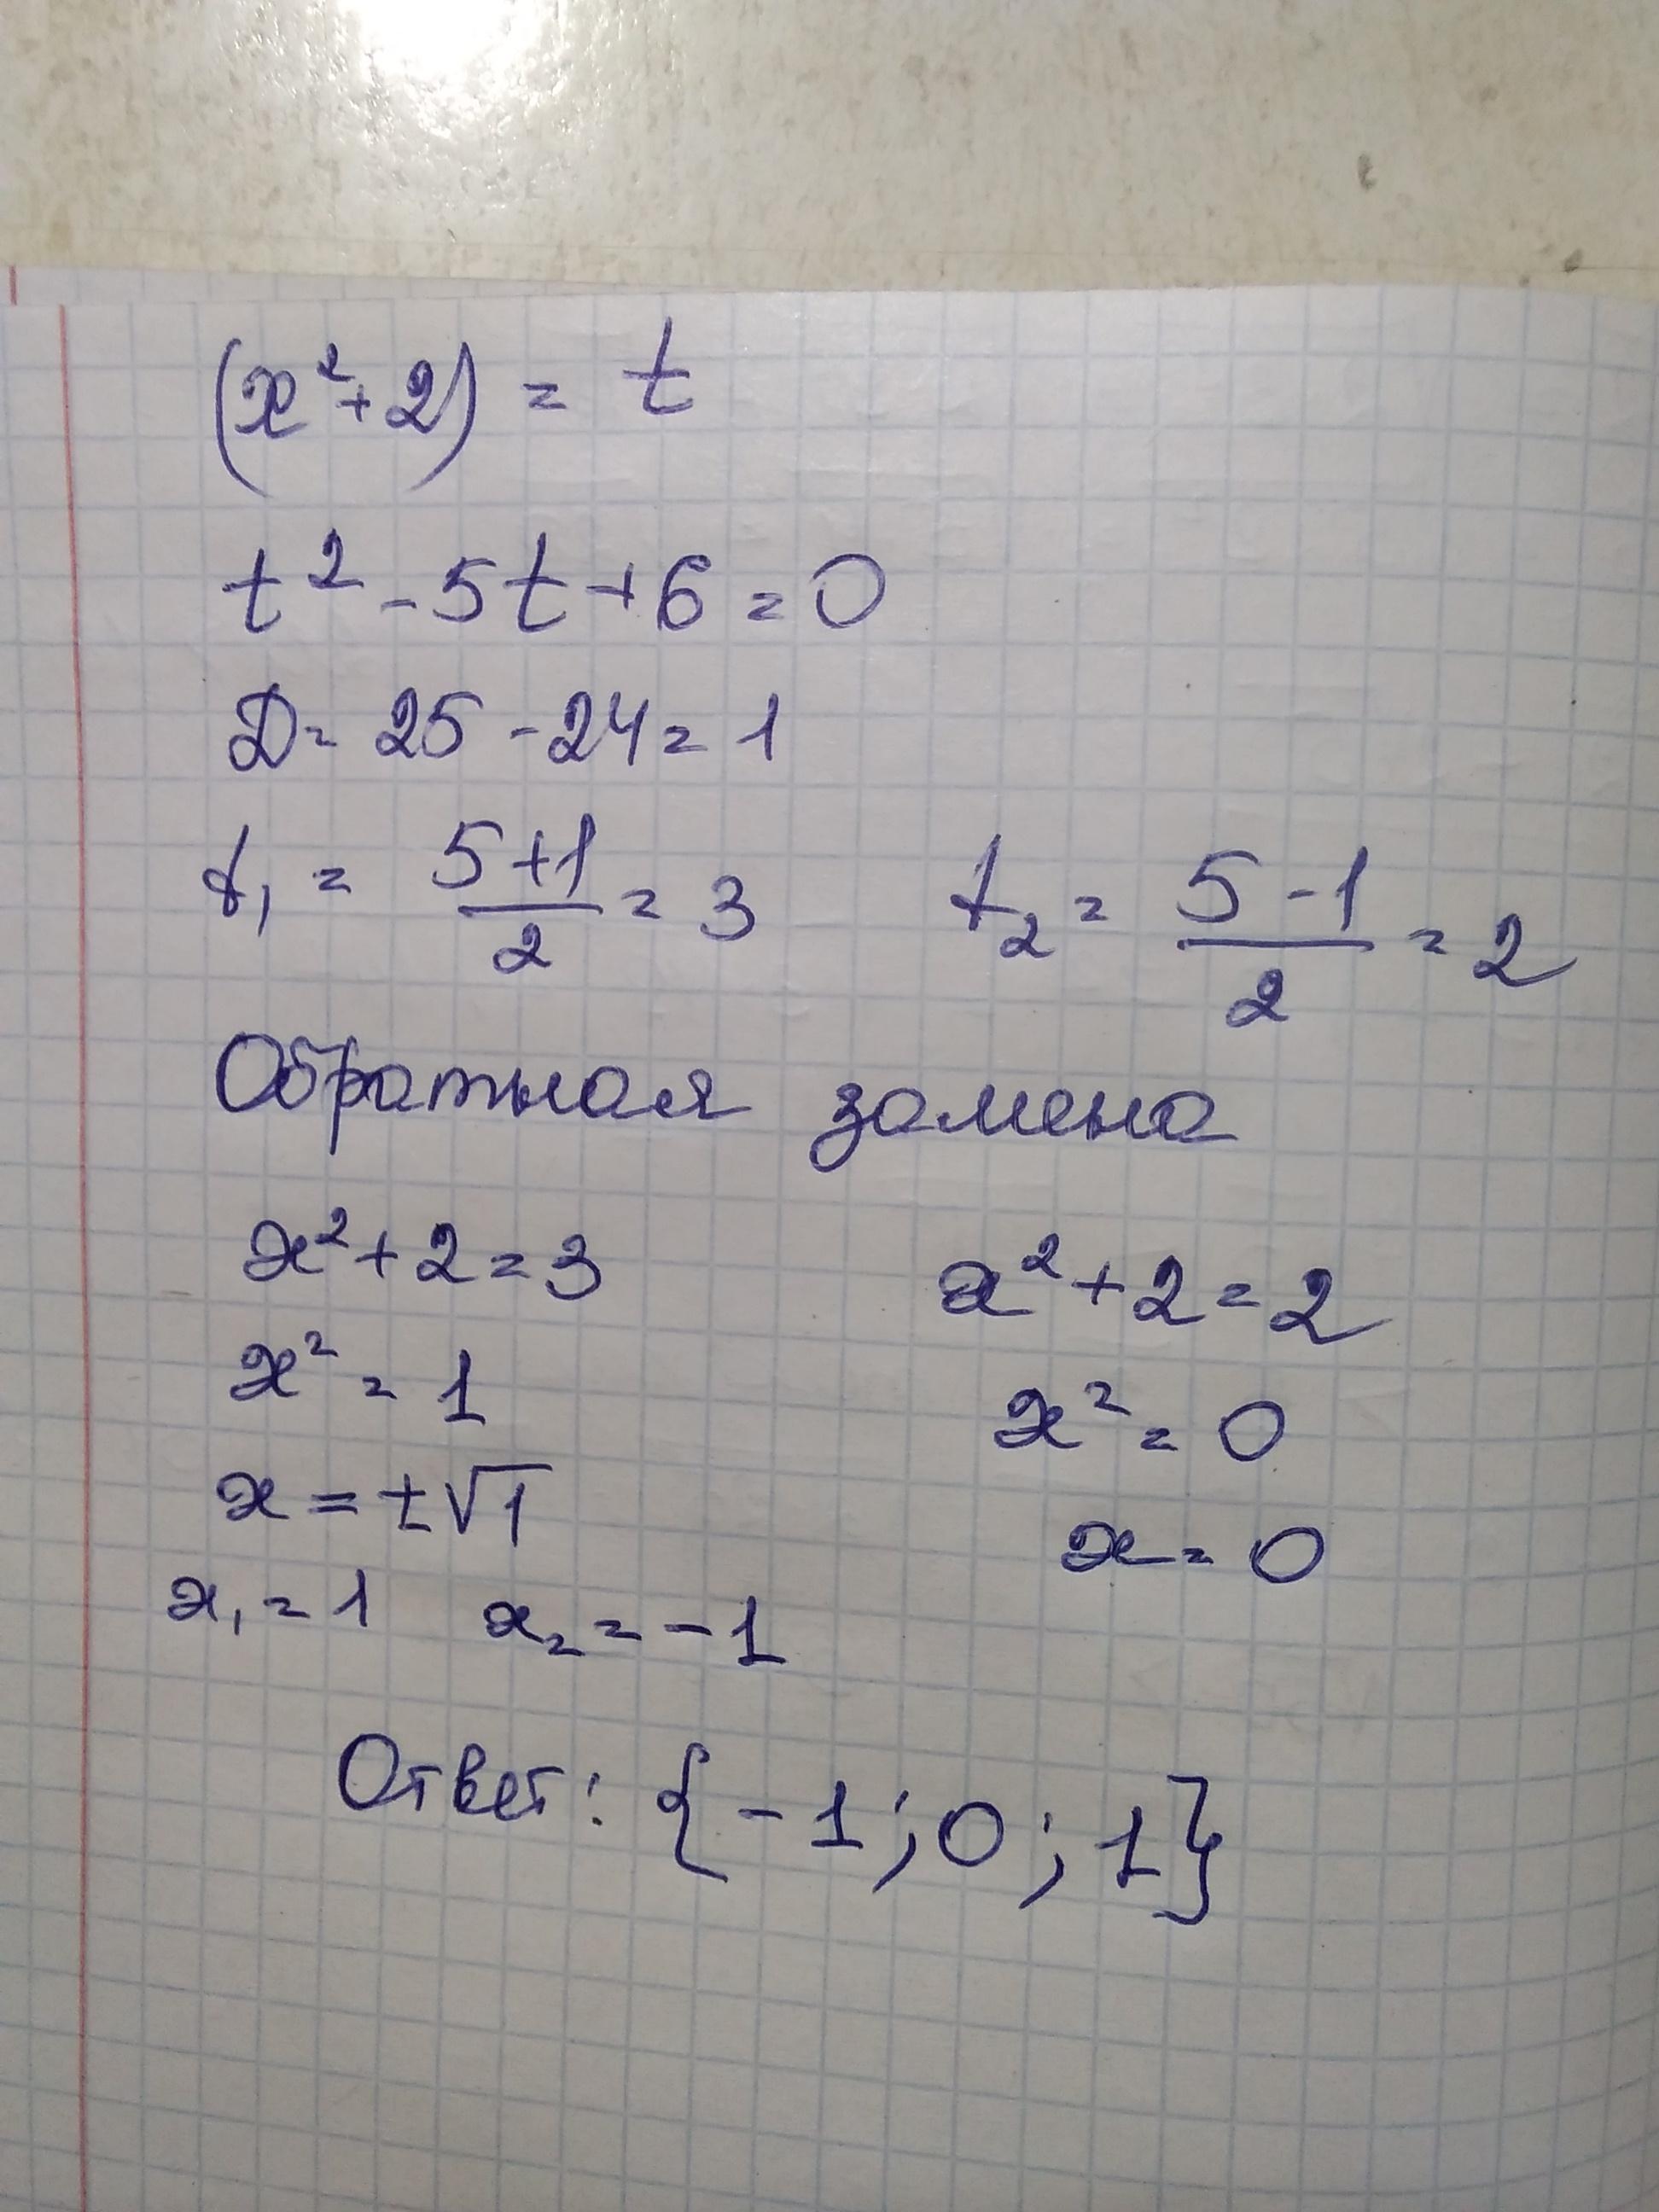 (x²+2) = t
t² - 5t + 6 = 0
D = 25 - 24 = 1
t₁ = (5+1)/2 = 3    t₂ = (5-1)/2 = 2
Обратная замена
x² + 2 = 3    x² + 2 = 2
x² = 1    x² = 0
x = ±√1    x = 0
x₁ = 1    x₂ = -1
Ответ: {-1; 0; 1}